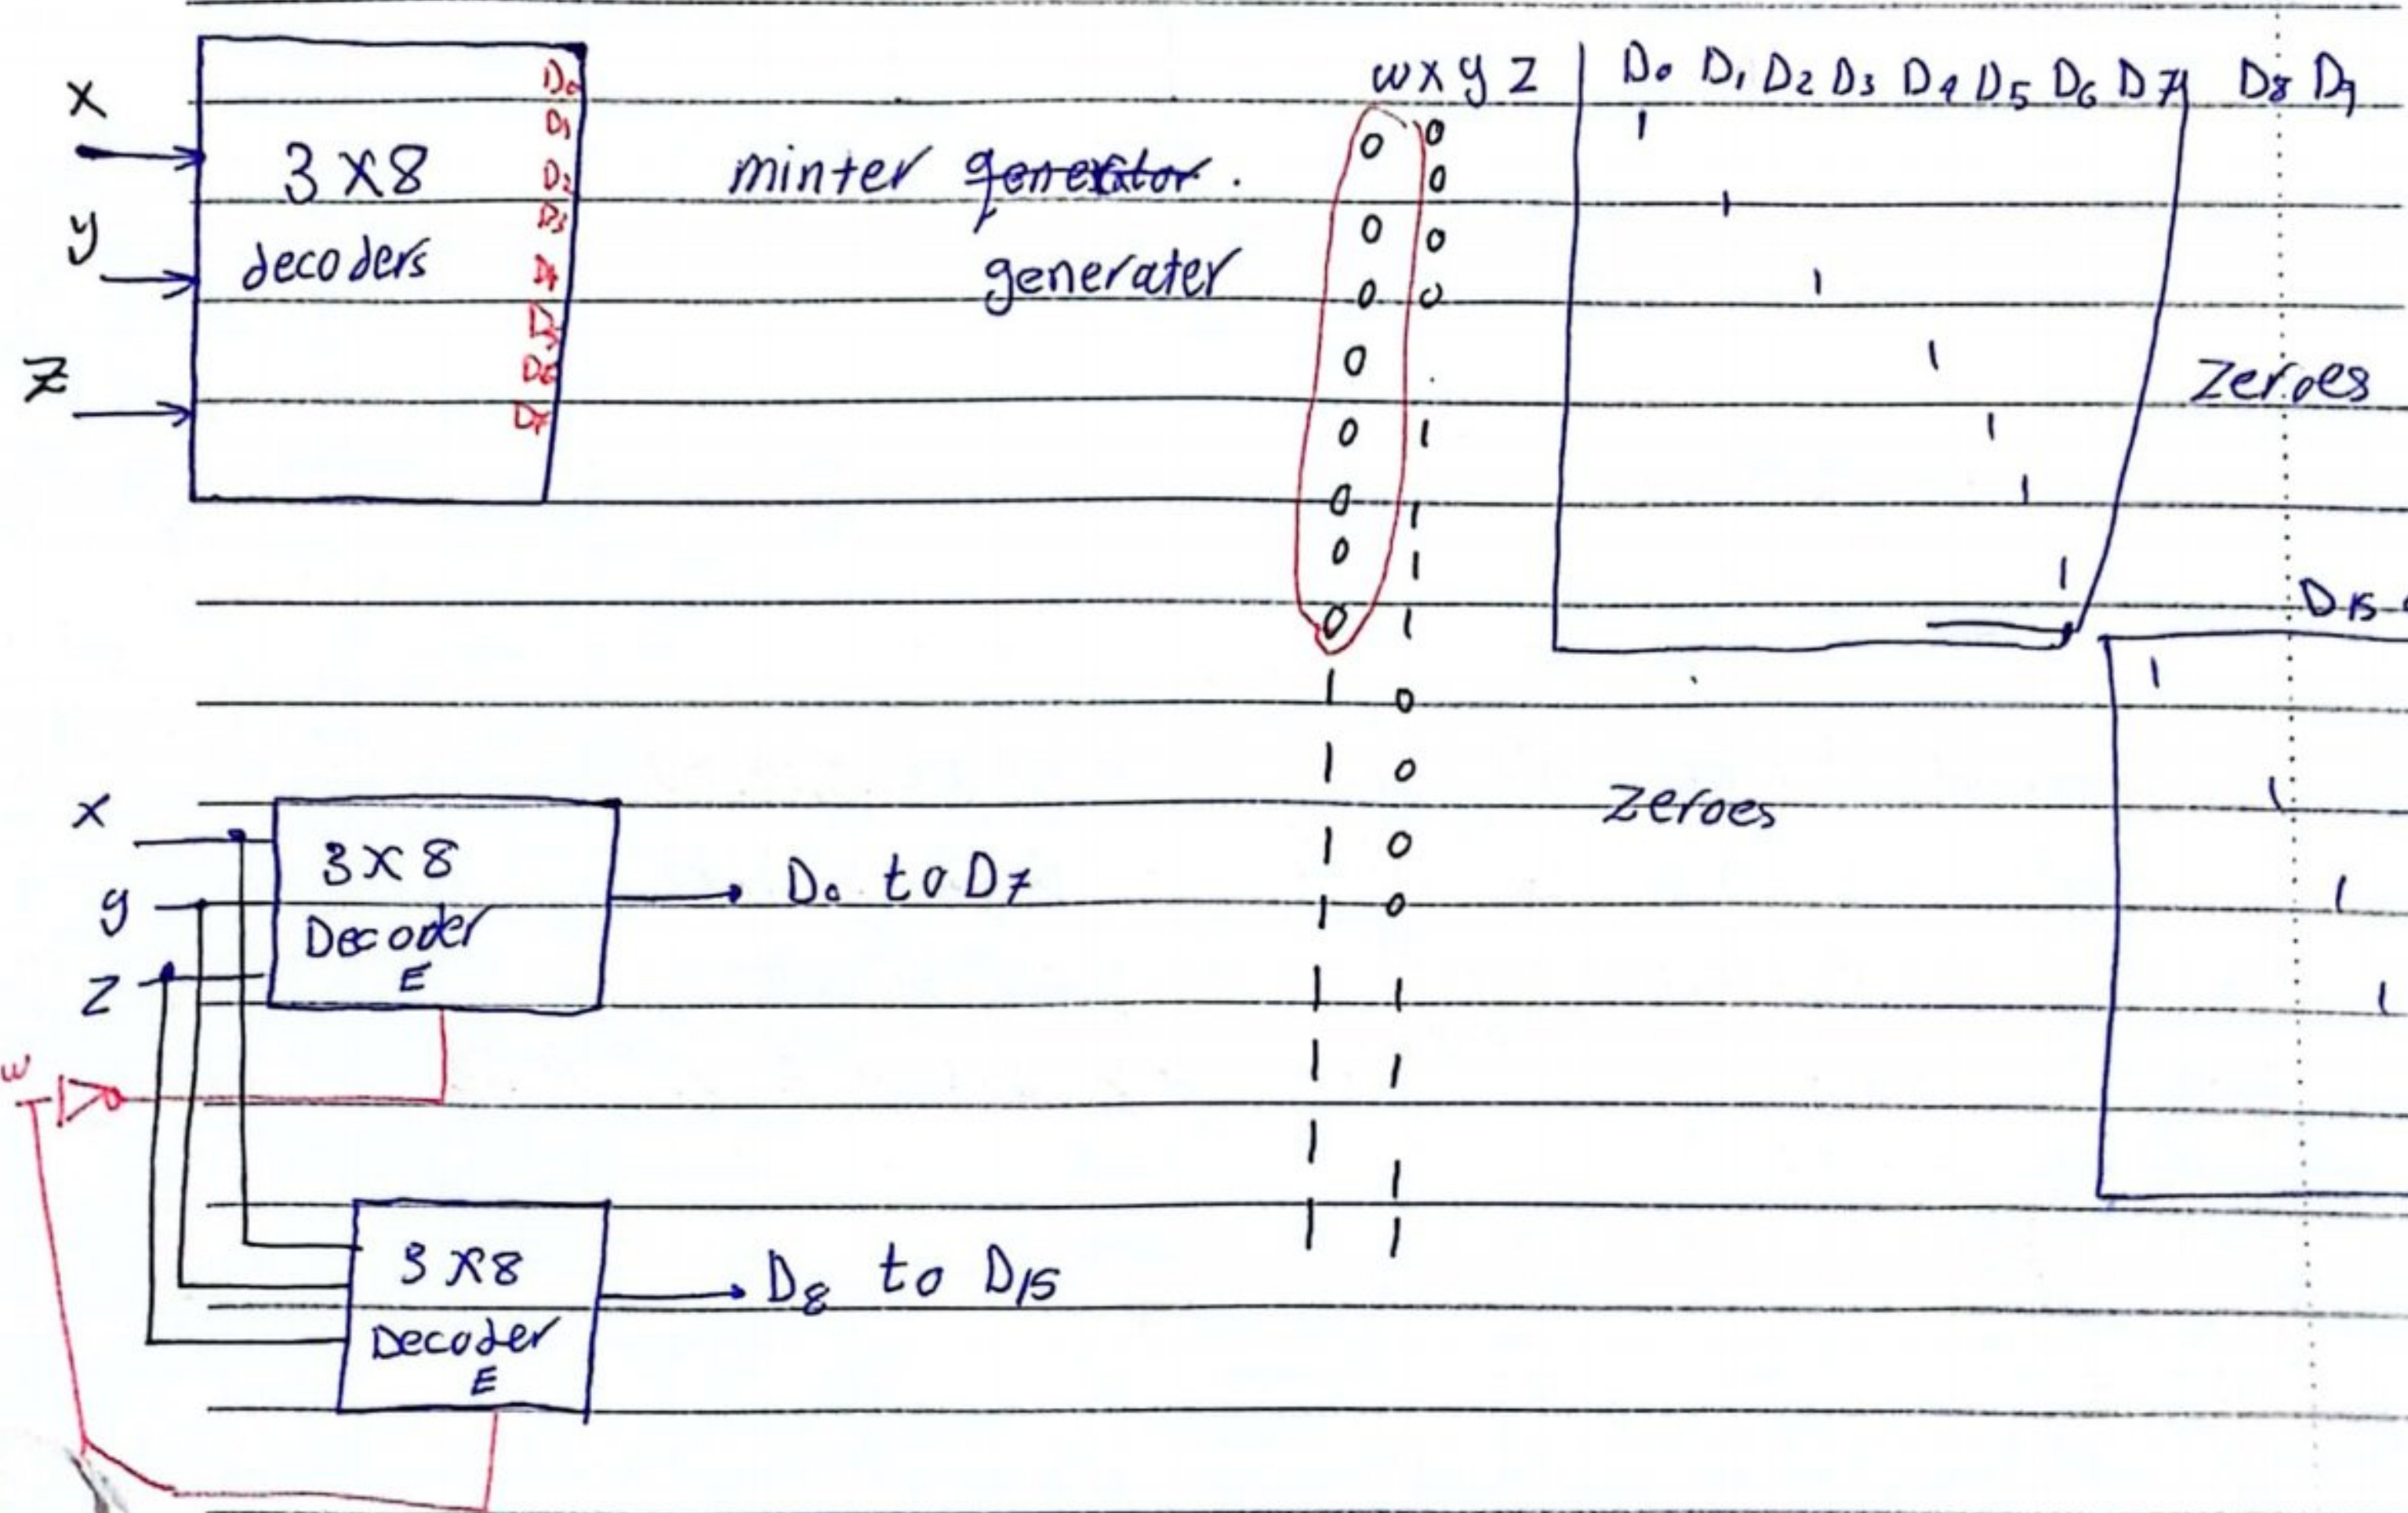 x
y
z
3 x 8
decoders
D0
D1
D2
D3
D4
D5
D6
D7
minter generator.
generater
w x y z | D0 D1 D2 D3 D4 D5 D6 D7 D8 D9
0 0 1
0
0 0 1
0 0 1
0 1
0 1 1
0 1 1
0 1 1
0 1
zeroes
D15
1 0 1
1 0 1
1 0
1 0 1
1 1 1
1 1
1 1
1 1
zeroes
x
y
z
w
3 x 8
Decoder
E
D0 to D7
3 x 8
Decoder
E
D8 to D15